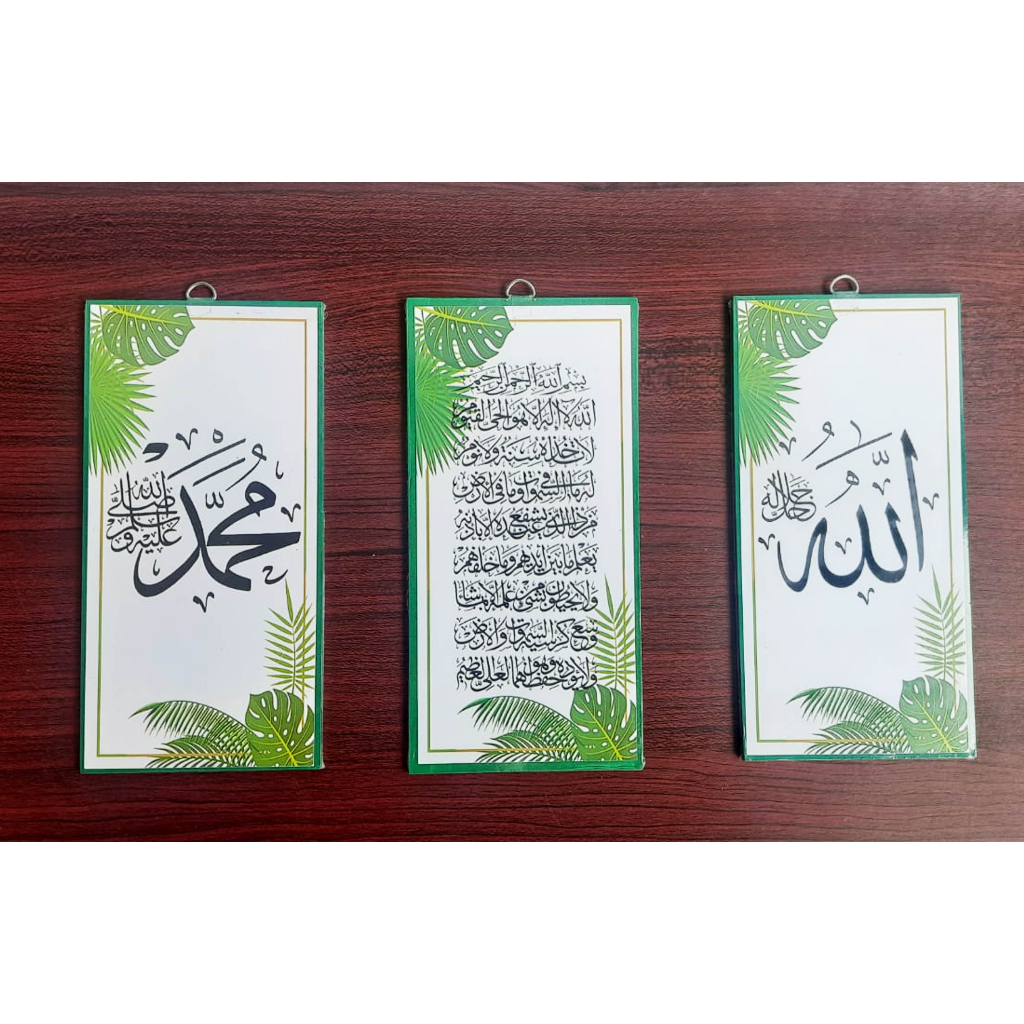 الله
جل جلاله
بسم الله الرحمن الرحيم
الله لا اله الا هو الحي القيوم
لا تأخذه سنة ولا نوم
له ما في السموات وما في الارض
من ذا الذي يشفع عنده الا باذنه
يعلم ما بين ايديهم وما خلفهم
ولا يحيطون بشيء من علمه الا بما شا
وسع كرسيه السموات والارض
ولا يؤده حفظهما وهو العلي العظيم
محمد
صلى الله عليه وسلم